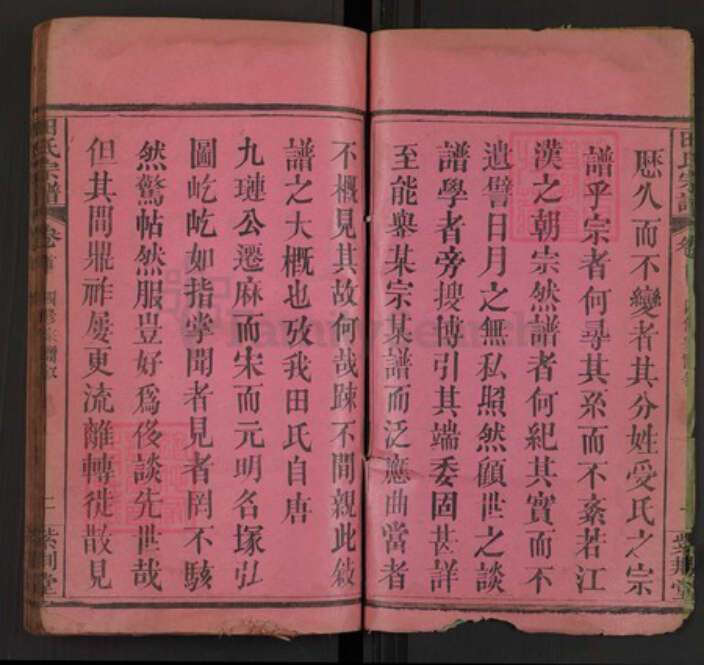 歷久而不變者其分姓受氏之宗
譜乎宗者何尋其系而不紊若江
漢之朝宗然譜者何紀其實而不
遺譬日月之無私照然顧世之談
譜學者旁搜博引其端委固甚詳
至能舉某宗某譜而泛應曲當者
不概見其故何哉踈不間親此敍
譜之大概也攷我田氏自唐
九璉公遷麻而宋而元明名塚弘
圖屹屹如指掌聞者見者罔不駭
然驚帖然服豈好爲侈談先世哉
但其間鼎祚屡更流離轉徙散見
田氏宗譜
卷首
二
紫荆堂
FamilySearch